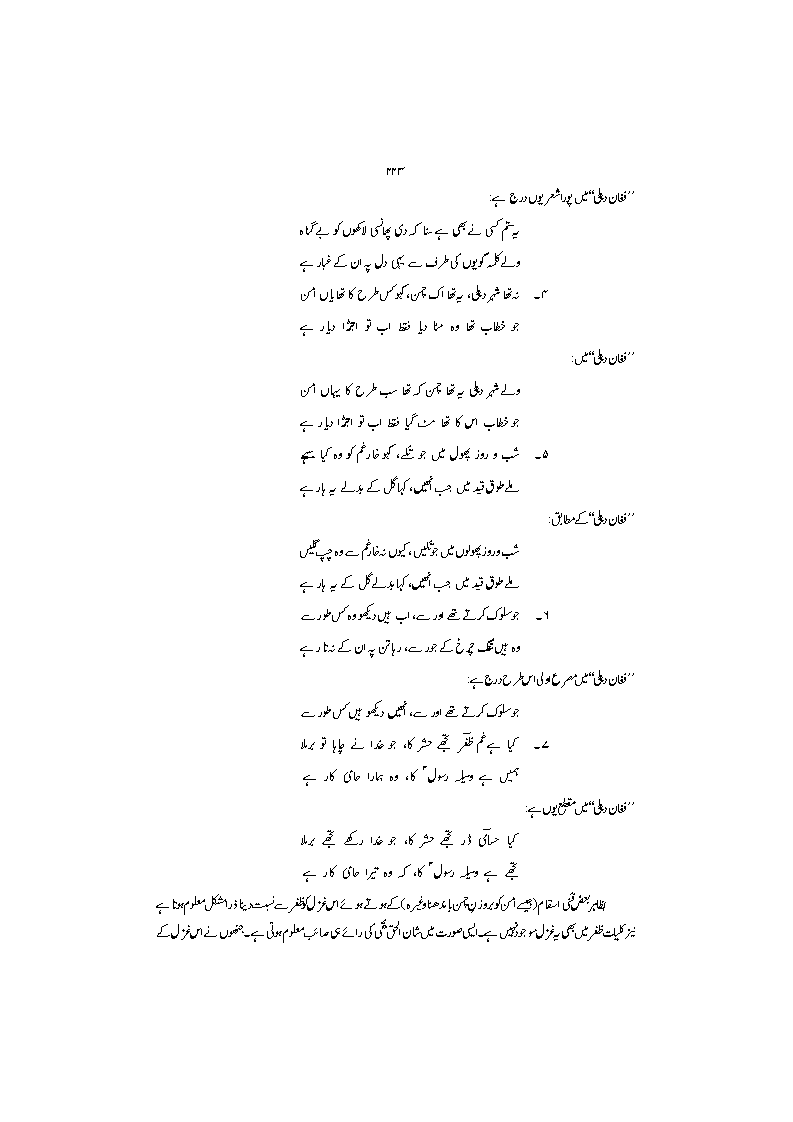 ۲۲۳
’’فغانِ دہلی‘‘ میں پورا شعر یوں درج ہے:
یہ ستم کسی نے بھی ہے سنا کہ دی پھانسی لاکھوں کو بے گناہ
ولے کلمہ گویوں کی طرف سے یہی دل پہ ان کے غبار ہے
۴۔ نہ تھا شہر دہلی، یہ تھا اک چمن، کہو کس طرح کا تھا یاں امن
جو خطاب تھا وہ مٹا دیا فقط اب تو اجڑا دیار ہے
’’فغانِ دہلی‘‘ میں:
ولے شہر دہلی یہ تھا چمن کہ تھا سب طرح کا یہاں امن
جو خطاب اس کا تھا مٹ گیا فقط اب تو اجڑا دیار ہے
۵۔ شب و روز پھول میں جو تلے، کہو خارِ غم کو وہ کیا سہے
ملے طوق قید میں جب انھیں، کہا گل کے بدلے یہ ہار ہے
’’فغانِ دہلی‘‘ کے مطابق:
شب و روز پھولوں میں جو تلیں، کیوں نہ خارِ غم سے وہ چپ گلیں
ملے طوق قید میں جب انھیں، کہا بدلے گل کے یہ ہار ہے
۶۔ جو سلوک کرتے تھے اور سے، اب ہیں دیکھو وہ کس طور سے
وہ ہیں تنگ چرخ کے جور سے، رہا تن پہ ان کے نہ تار ہے
’’فغانِ دہلی‘‘ میں مصرع اولیٰ اس طرح درج ہے:
جو سلوک کرتے تھے اور سے، انھیں دیکھو ہیں کس طور سے
۷۔ کیا ہے غم ظفرؔ تجھے حشر کا، جو خدا نے چاہا تو برملا
ہمیں ہے وسیلہ رسولؐ کا، وہ ہمارا حامیِ کار ہے
’’فغانِ دہلی‘‘ میں مقطع یوں ہے:
کیا حسامیؔ ڈر تجھے حشر کا، جو خدا رکھے تجھے برملا
تجھے ہے وسیلہ رسولؐ کا، کہ وہ تیرا حامیِ کار ہے
بظاہر بعض فنی اسقام (جیسے امن کو بروزنِ چمن باندھنا وغیرہ) کے ہوتے ہوئے اس غزل کو ظفر سے نسبت دینا ذرا مشکل معلوم ہوتا ہے
نیز کلیاتِ ظفر میں بھی یہ غزل موجود نہیں ہے۔ ایسی صورت میں شان الحق حقی کی رائے ہی صائب معلوم ہوتی ہے۔ جنھوں نے اس غزل کے